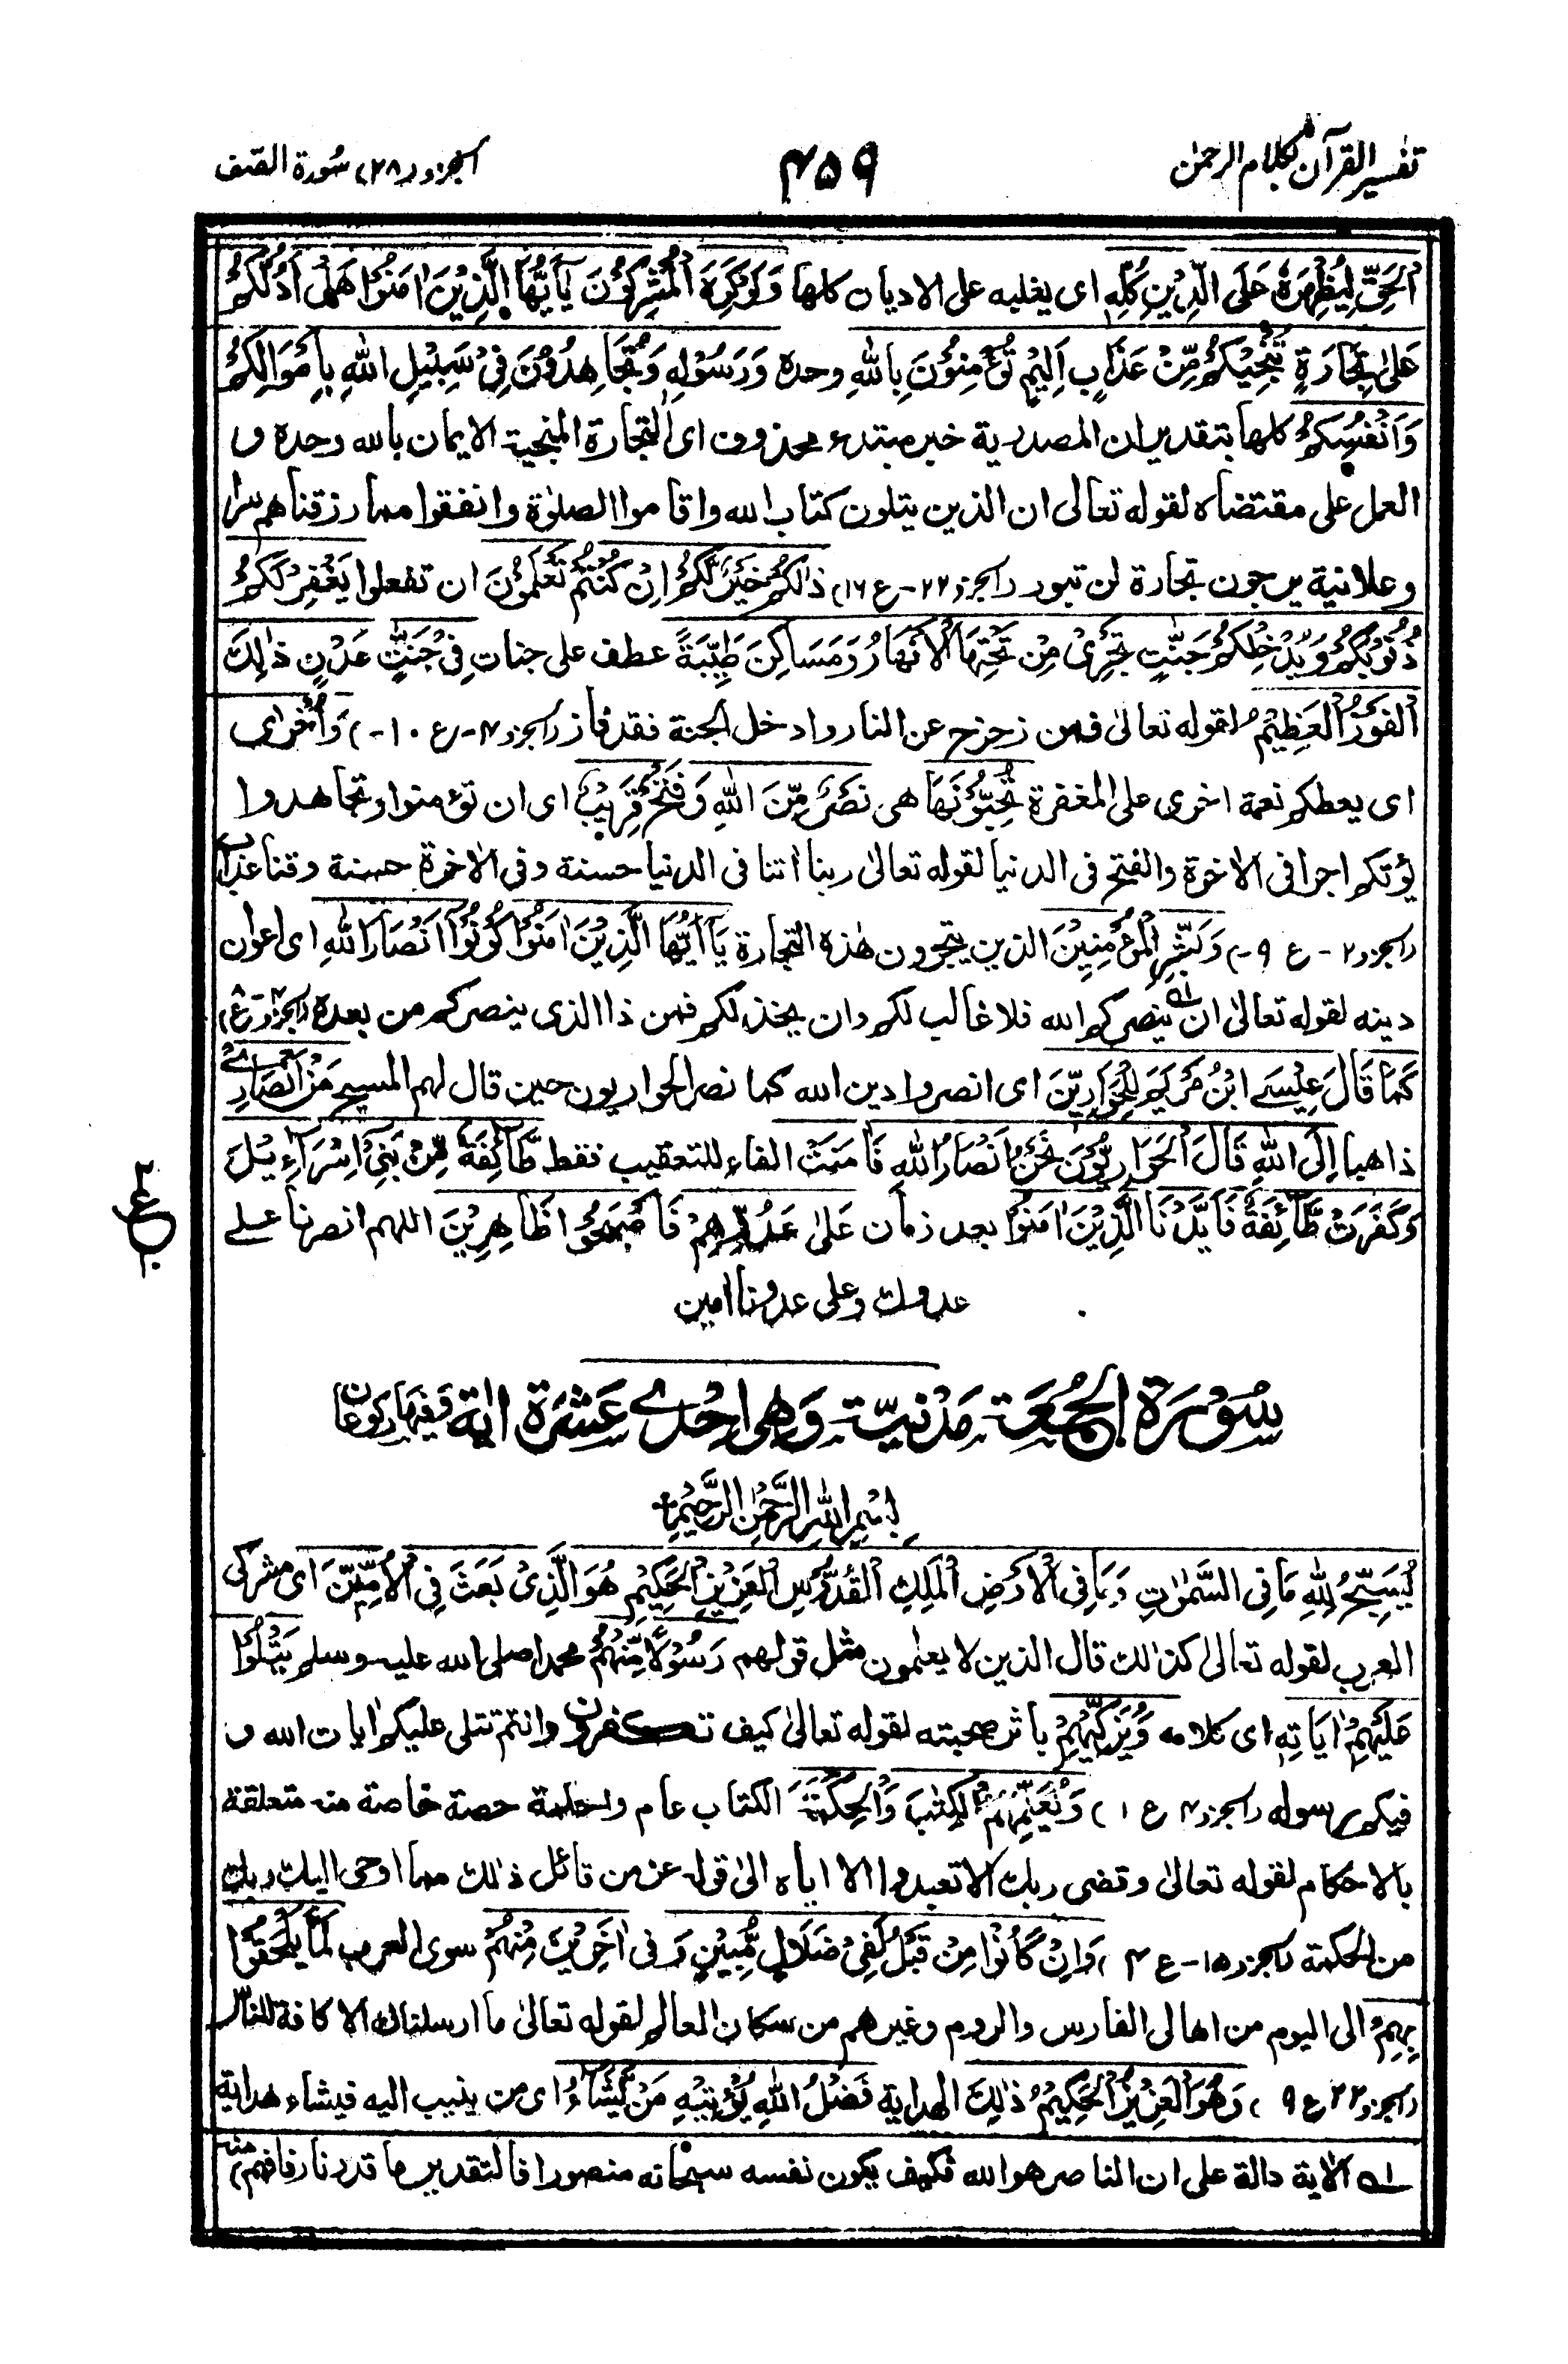 تفسیر القرآن بکلام الرحمٰن
۴۵۹
الجزو (۲۸) سُورة الصّف
الْحَقِّ لِيُظْهِرَهٗ عَلَى الدِّيْنِ كُلِّهٖ اى يغلبه على الاديان كلها وَلَوْ كَرِهَ الْمُشْرِكُوْنَ يٰٓاَيُّهَا الَّذِيْنَ اٰمَنُوْا هَلْ اَدُلُّكُمْ
عَلٰى تِجَارَةٍ تُنْجِيْكُمْ مِّنْ عَذَابٍ اَلِيْمٍ تُؤْمِنُوْنَ بِاللّٰهِ وحده وَرَسُوْلِهٖ وَتُجَاهِدُوْنَ فِيْ سَبِيْلِ اللّٰهِ بِاَمْوَالِكُمْ
وَاَنْفُسِكُمْ كلها بتقدير ان المصدرية خبر مبتدء محذوف اى التجارة المنجية الايمان بالله وحده و
العمل على مقتضاه لقوله تعالى ان الذين يتلون كتاب الله واقاموا الصلوٰة وانفقوا مما رزقناهم سرا
وعلانية يرجون تجارة لن تبور (الجزو ۲۲ - ع ۱۶) ذٰلِكُمْ خَيْرٌ لَّكُمْ اِنْ كُنْتُمْ تَعْلَمُوْنَ ان تفعلوا يَغْفِرْ لَكُمْ
ذُنُوْبَكُمْ وَيُدْخِلْكُمْ جَنّٰتٍ تَجْرِيْ مِنْ تَحْتِهَا الْاَنْهَارُ وَمَسَاكِنَ طَيِّبَةً عطف على جنات فِيْ جَنّٰتِ عَدْنٍ ذٰلِكَ
الْفَوْزُ الْعَظِيْمُ لقوله تعالىٰ فمن زحزح عن النار وادخل الجنة فقد فاز (الجزو ۴ - ع ۱۰ -) وَاُخْرٰى
اى يعطكم نعمة اخرى على المغفرة تُحِبُّوْنَهَا هى نَصْرٌ مِّنَ اللّٰهِ وَفَتْحٌ قَرِيْبٌ اى ان تؤمنوا وتجاهدوا
يؤتكم اجرا فى الاٰخرة والفتح فى الدنيا لقوله تعالىٰ ربنا اٰتنا فى الدنيا حسنة وفى الاٰخرة حسنة وقنا عذاب
(الجزو ۲ - ع ۹ -) وَبَشِّرِ الْمُؤْمِنِيْنَ الذين يتجرون هٰذه التجارة يٰٓاَيُّهَا الَّذِيْنَ اٰمَنُوْا كُوْنُوْا اَنْصَارَ اللّٰهِ اى اعوان
دينه لقوله تعالىٰ ان ينصركم الله فلا غالب لكم وان يخذلكم فمن ذا الذى ينصركم من بعده (الجزو ۴ - ع ۸)
كَمَا قَالَ عِيْسَى ابْنُ مَرْيَمَ لِلْحَوَارِيِّنَ اى انصروا دين الله كما نصر الحواريون حين قال لهم المسيح مَنْ اَنْصَارِيْ
ذاهبا اِلَى اللّٰهِ قَالَ الْحَوَارِيُّوْنَ نَحْنُ اَنْصَارُ اللّٰهِ فَاٰمَنَتْ الفاء للتعقيب فقط طَّآئِفَةٌ مِّنْ بَنِيْ اِسْرَآءِيْلَ
وَكَفَرَتْ طَّآئِفَةٌ فَاَيَّدْنَا الَّذِيْنَ اٰمَنُوْا بعد زمان عَلٰى عَدُوِّهِمْ فَاَصْبَحُوْا ظَاهِرِيْنَ اللهم انصرنا على
عدوك وعلى عدونا اٰمين
ع
سُوْرَةُ الْجُمُعَةِ مَدَنِيَّةٌ وَهِيَ اِحْدٰى عَشَرَةَ اٰيَةً وَفِيْهَا رُكُوْعَانِ
بِسْمِ اللّٰهِ الرَّحْمٰنِ الرَّحِيْمِ
يُسَبِّحُ لِلّٰهِ مَا فِى السَّمٰوٰتِ وَمَا فِى الْاَرْضِ الْمَلِكِ الْقُدُّوْسِ الْعَزِيْزِ الْحَكِيْمِ هُوَ الَّذِيْ بَعَثَ فِى الْاُمِّيّٖنَ اى مشركى
العرب لقوله تعالىٰ كذٰلك قال الذين لا يعلمون مثل قولهم رَسُوْلًا مِّنْهُمْ محمدا صلى الله عليه وسلم يَتْلُوْا
عَلَيْهِمْ اٰيَاتِهٖ اى كلامه وَيُزَكِّيْهِمْ باثر صحبته لقوله تعالىٰ كيف تكفرون وانتم تتلى عليكم اٰيات الله و
فيكم رسوله (الجزو ۴ ع ۱) وَيُعَلِّمُهُمُ الْكِتٰبَ وَالْحِكْمَةَ الكتاب عام والحكمة حصة خاصة منه متعلقة
بالاحكام لقوله تعالىٰ وقضى ربك الا تعبدوا الا اياه الىٰ قوله عز من قائل ذٰلك مما اوحى اليك ربك
من الحكمة (الجزو ۱۵ - ع ۴) وَاِنْ كَانُوْا مِنْ قَبْلُ لَفِيْ ضَلَالٍ مُّبِيْنٍ وَفى اٰخَرِيْنَ مِنْهُمْ سوى العرب لَمَّا يَلْحَقُوْا
بِهِمْ الى اليوم من اهالى الفارس والروم وغيرهم من سكان العالم لقوله تعالىٰ ما ارسلناك الا كافة للناس
(الجزو ۲۲ ع ۹) وَهُوَ الْعَزِيْزُ الْحَكِيْمُ ذٰلِكَ الهداية فَضْلُ اللّٰهِ يُؤْتِيْهِ مَنْ يَّشَآءُ اى من ينيب اليه فيشاء هداية
له الاٰية دالة على ان الناصر هو الله فكيف يكون نفسه سبحانه منصورا فالتقدير ما قدرنا (فافهم) منه